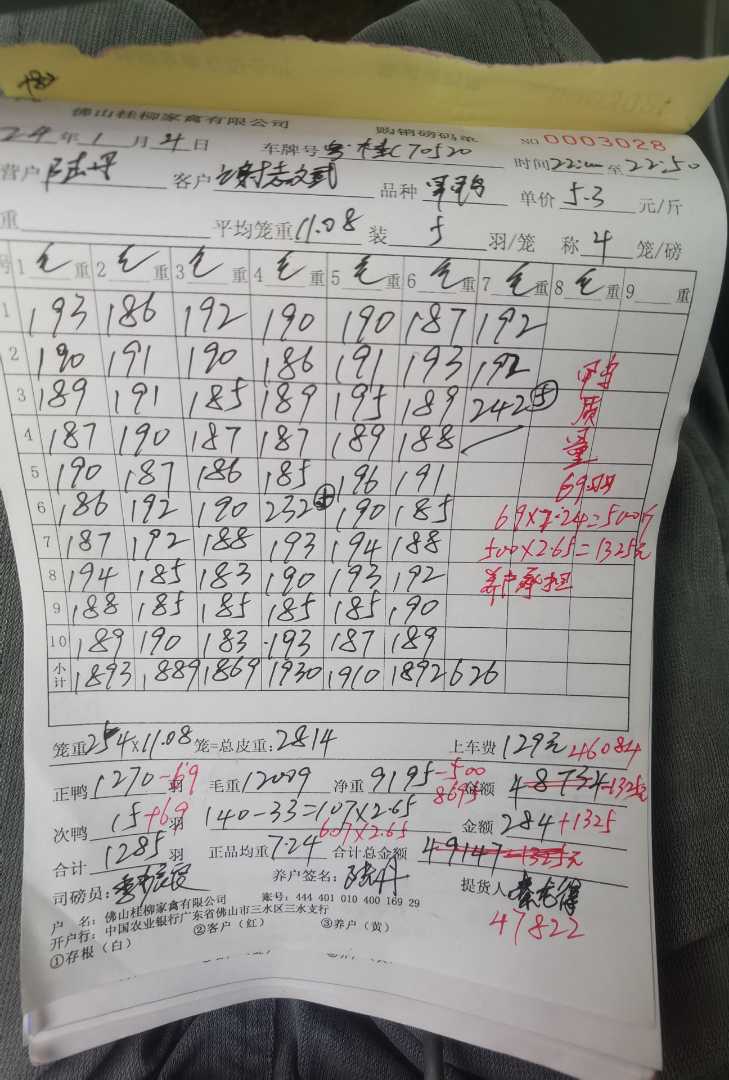 佛山桂柳家禽有限公司 购销磅码单 NO 0003028
24年1月21日 车牌号 粤·桂C70520 时间22: 至22:50
营户 客户 品种 单价5.3元/斤
重 平均笼重11.08 装5羽/笼 称4笼/磅
号 1毛重 2毛重 3毛重 4毛重 5毛重 6毛重 7毛重 8毛重 9 重
1 193 186 192 190 190 187 192
2 190 191 190 186 191 193 192
3 189 191 185 189 195 189 242⑤
4 187 190 187 187 189 188
5 190 187 186 185 196 191
6 186 192 190 232⑤ 190 185
7 187 192 188 193 194 188
8 194 185 183 190 193 192
9 188 185 185 185 185 190
10 189 190 183 193 187 189
小计 1893 1889 1869 1930 1910 1892 626
质
量
69羽
69×7.24=500斤
500×2.65=1325元
养户承担
笼重254×11.08笼=总皮重:2814 上车费129元 46084
正鸭1270-69羽 毛重12009 净重9195-500 金额48734-1325元
8695
次鸭15+69羽 140-33=107×2.65 金额284+1325
607×2.65
合计1285羽 正品均重7.24 合计总金额49147-1325元
司磅员: 养户签名: 提货人
47822
户 名:佛山桂柳家禽有限公司 账号:444 401 010 400 169 29
开户行:中国农业银行广东省佛山市三水区三水支行
①存根(白) ②客户(红) ③养户(黄)